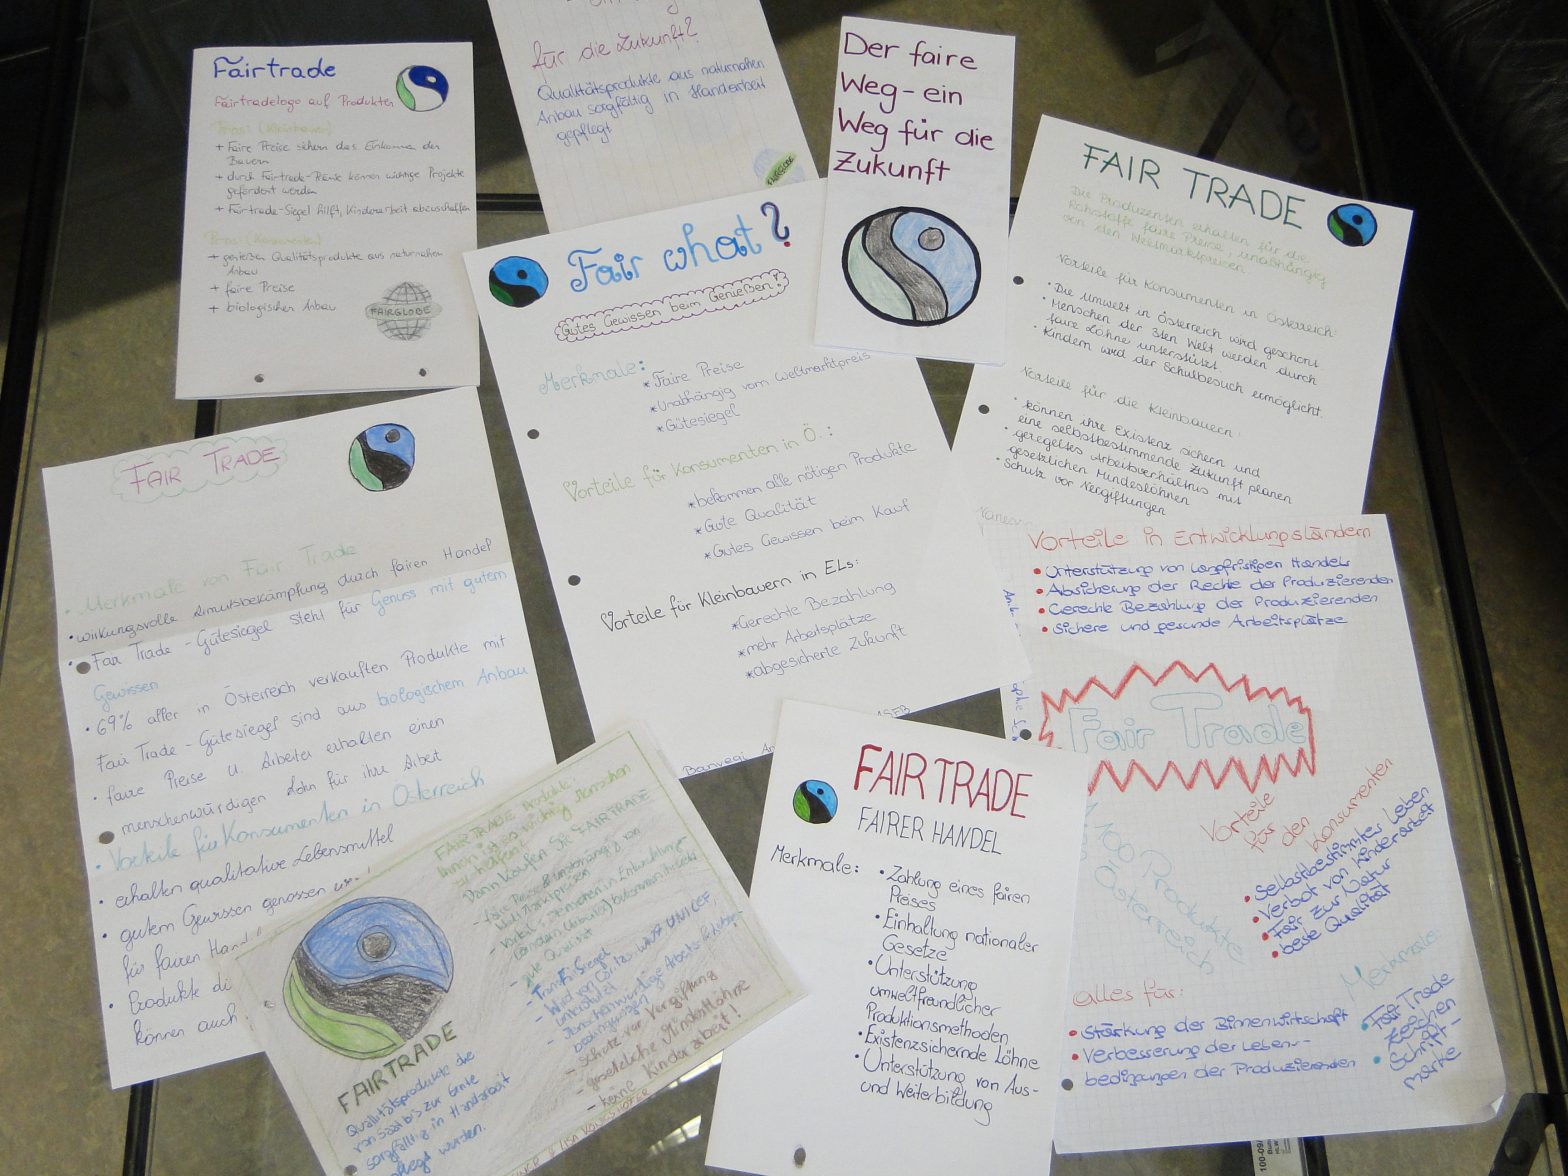 Fairtrade
Fairtradelogo auf Produkten
+ Faire Preise
Bauern
+ durch Fairtrade-
gefördert werden
+ Fairtrade-Siegel hilft, Kinderarbeit abzuschaffen
+ genießen Qualitätsprodukte aus
Anbau
+ faire Preise
+ biologischen Anbau
FAIRGLOBE
für die Zukunft?
Qualitätsprodukte aus
Anbau sorgfältig in Handarbeit
gepflegt
FAIRGLOBE
Der faire
Weg - ein
Weg für die
Zukunft
FAIR TRADE
Die Produzenten erhalten für die
Rohstoffe faire Preise unabhängig
von den Weltmarktpreisen
Vorteile für Konsumenten in Österreich:
• Die Umwelt in Österreich wird geschont
• Menschen der 3ten Welt werden durch
faire Löhne unterstützt
• Kindern wird der Schulbesuch ermöglicht
Vorteile für die Kleinbauern:
• können ihre Existenz sichern und
eine selbstbestimmende Zukunft planen
• geregeltes Arbeitsverhältnis mit
gesetzlichen Mindestlöhnen
• Schutz vor Vergiftungen
Fair what?
Gutes Gewissen beim Genießen!
Merkmale:
* Faire Preise
* Unabhängig vom Weltmarktpreis
* Gütesiegel
Vorteile für Konsumenten in Ö.:
* bekommen alle nötigen Produkte
* Gute Qualität
* Gutes Gewissen beim Kauf
Vorteile für Kleinbauern in ELs:
* Gerechte Bezahlung
* mehr Arbeitsplätze
* abgesicherte Zukunft
FAIR TRADE
• Merkmale von Fair Trade
• wirkungsvolle Armutsbekämpfung durch fairen Handel
• Fair Trade - Gütesiegel steht für Genuss mit gutem
Gewissen
• 69% aller in Österreich verkauften Produkte mit
Fair Trade - Gütesiegel sind aus biologischem Anbau
• faire Preise u. Arbeiter erhalten einen
menschenwürdigen Lohn für ihre Arbeit
• Vorteile für Konsumenten in Österreich
• erhalten qualitative Lebensmittel
• gutem Gewissen genossen
für fairen
• Produkte
können auch
FAIRTRADE Produkte
Dann kaufen Sie FAIRTRADE
gute Qualität
- Schutz vor Vergiftung
- gesetzliche Mindestlöhne
- keine Kinderarbeit!
FAIRTRADE
Qualitätsprodukte die
von Saat bis zur Ernte
sorgfältig in Handarbeit
gepflegt wurden.
FAIR TRADE
FAIRER HANDEL
Merkmale:
• Zahlung eines fairen
Preises
• Einhaltung nationaler
Gesetze
• Unterstützung
umweltfreundlicher
Produktionsmethoden
• Existenzsichernde Löhne
• Unterstützung von Aus-
und Weiterbildung
Vorteile in Entwicklungsländern
• Unterstützung von langfristigen Handels
• Absicherung der Rechte der Produzierenden
• Gerechte Bezahlung der Produzierenden
• Sichere und gesunde Arbeitsplätze
Fair Trade
Vorteile
für den
Konsumenten
Produkte
Österreich
• Selbstbestimmter Leben
• Verbot von Kinderarbeit
• Fair zur Natur
• beste Qualität
alles für:
• Stärkung der Binnenwirtschaft
• Verbesserung der Lebens-
• bedingungen der Produzierenden
Merkmale
• Fair Trade
Zeichen
• Schrift-
marke